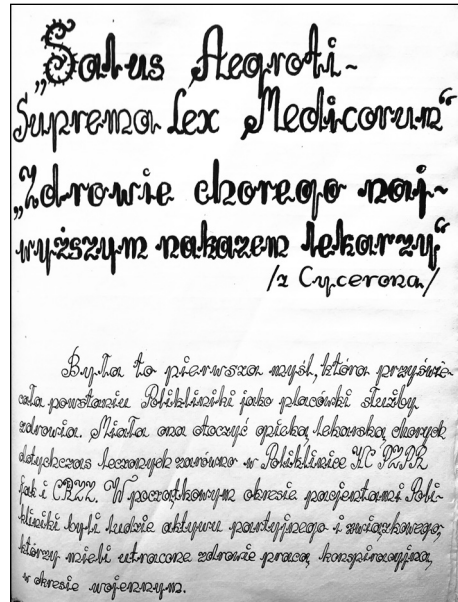 „Salus Aegroti-
Suprema Lex Medicorum“
„Zdrowie chorego naj-
wyższym nakazem lekarzy“
/z Cycerona/
Była to pierwsza myśl, która przyświe-
cała powstaniu Polikliniki jako placówki służby
zdrowia. Miała ona otoczyć opieką lekarską chorych
dotychczas leczonych zarówno w Poliklinice KC PZPR
jak i CRZZ. W początkowym okresie pacjentami Poli-
kliniki byli ludzie aktywu partyjnego i związkowego,
którzy mieli utracone zdrowie pracą konspiracyjną,
w okresie wojennym.